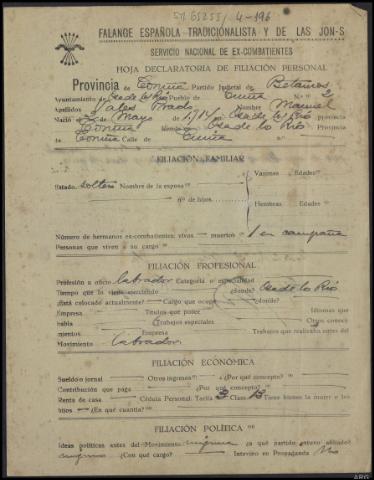 4-196
FALANGE ESPAÑOLA TRADICIONALISTA Y DE LAS JON-S
SERVICIO NACIONAL DE EX-COMBATIENTES
HOJA DECLARATORIA DE FILIACIÓN PERSONAL
Provincia de Coruña Partido Judicial de Betanzos
Ayuntamiento de Pueblo de N.º 2
Apellidos Vales Prado Nombre Manuel
Nació de Mayo de provincia
Coruña Provincia
Coruña Calle de
FILIACIÓN FAMILIAR
Varones Edades
Estado soltero Nombre de la esposa
n.º de hijos
Hembras Edades
Número de hermanos ex-combatientes: vivos — muertos 1 en campaña
Personas que viven a su cargo
FILIACIÓN PROFESIONAL
Profesión u oficio labrador Categoría o especialidad
Tiempo que la viene ejerciendo ¿dónde?
¿Está colocado actualmente? Cargo que ocupa ¿dónde?
Empresa Títulos que posee Idiomas que
habla Trabajos especiales Otros conoci-
mientos Empresa Trabajos que realizaba antes del
Movimiento labrador
FILIACIÓN ECONÓMICA
Sueldo o jornal Otros ingresos ¿Por qué concepto?
Contribución que paga ¿Por qué concepto?
Renta de casa Cédula Personal: Tarifa 3 Clase 13 Tiene bienes la mujer o los
hijos ¿En qué cuantía?
FILIACIÓN POLÍTICA
Ideas políticas antes del Movimiento ninguna ¿a qué partido estuvo afiliado?
ninguno ¿Con qué cargo? Intervino en Propaganda No
ARG